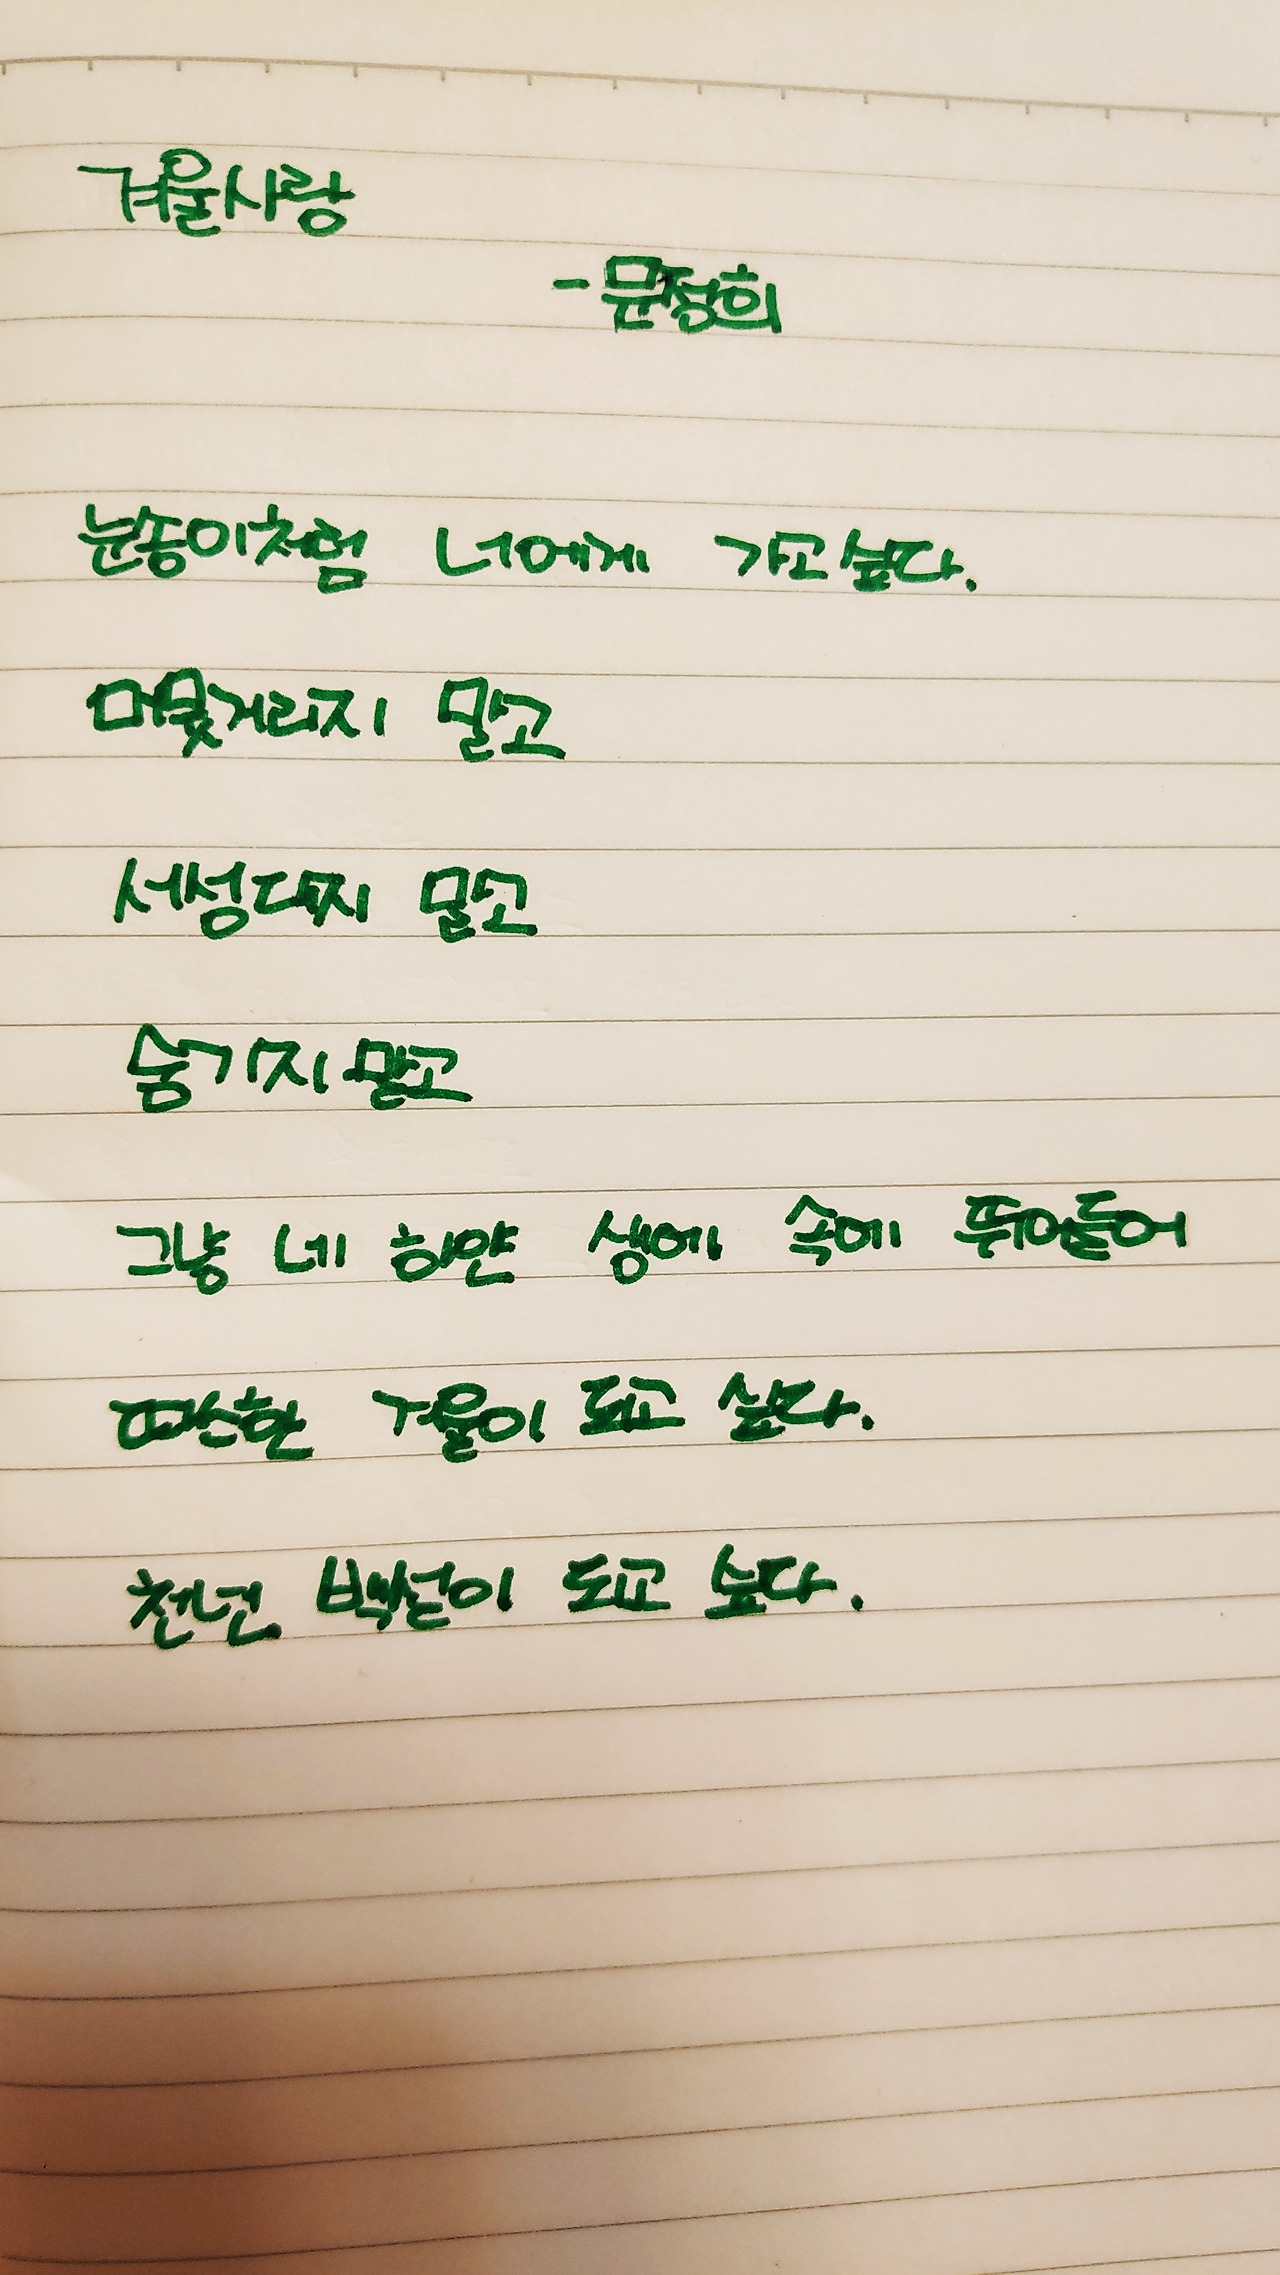 겨울사랑
- 문정희
눈송이처럼 너에게 가고싶다.
머뭇거리지 말고
서성대지 말고
숨기지 말고
그냥 네 하얀 생에 속에 뛰어들어
따스한 겨울이 되고 싶다.
천년 백설이 되고 싶다.